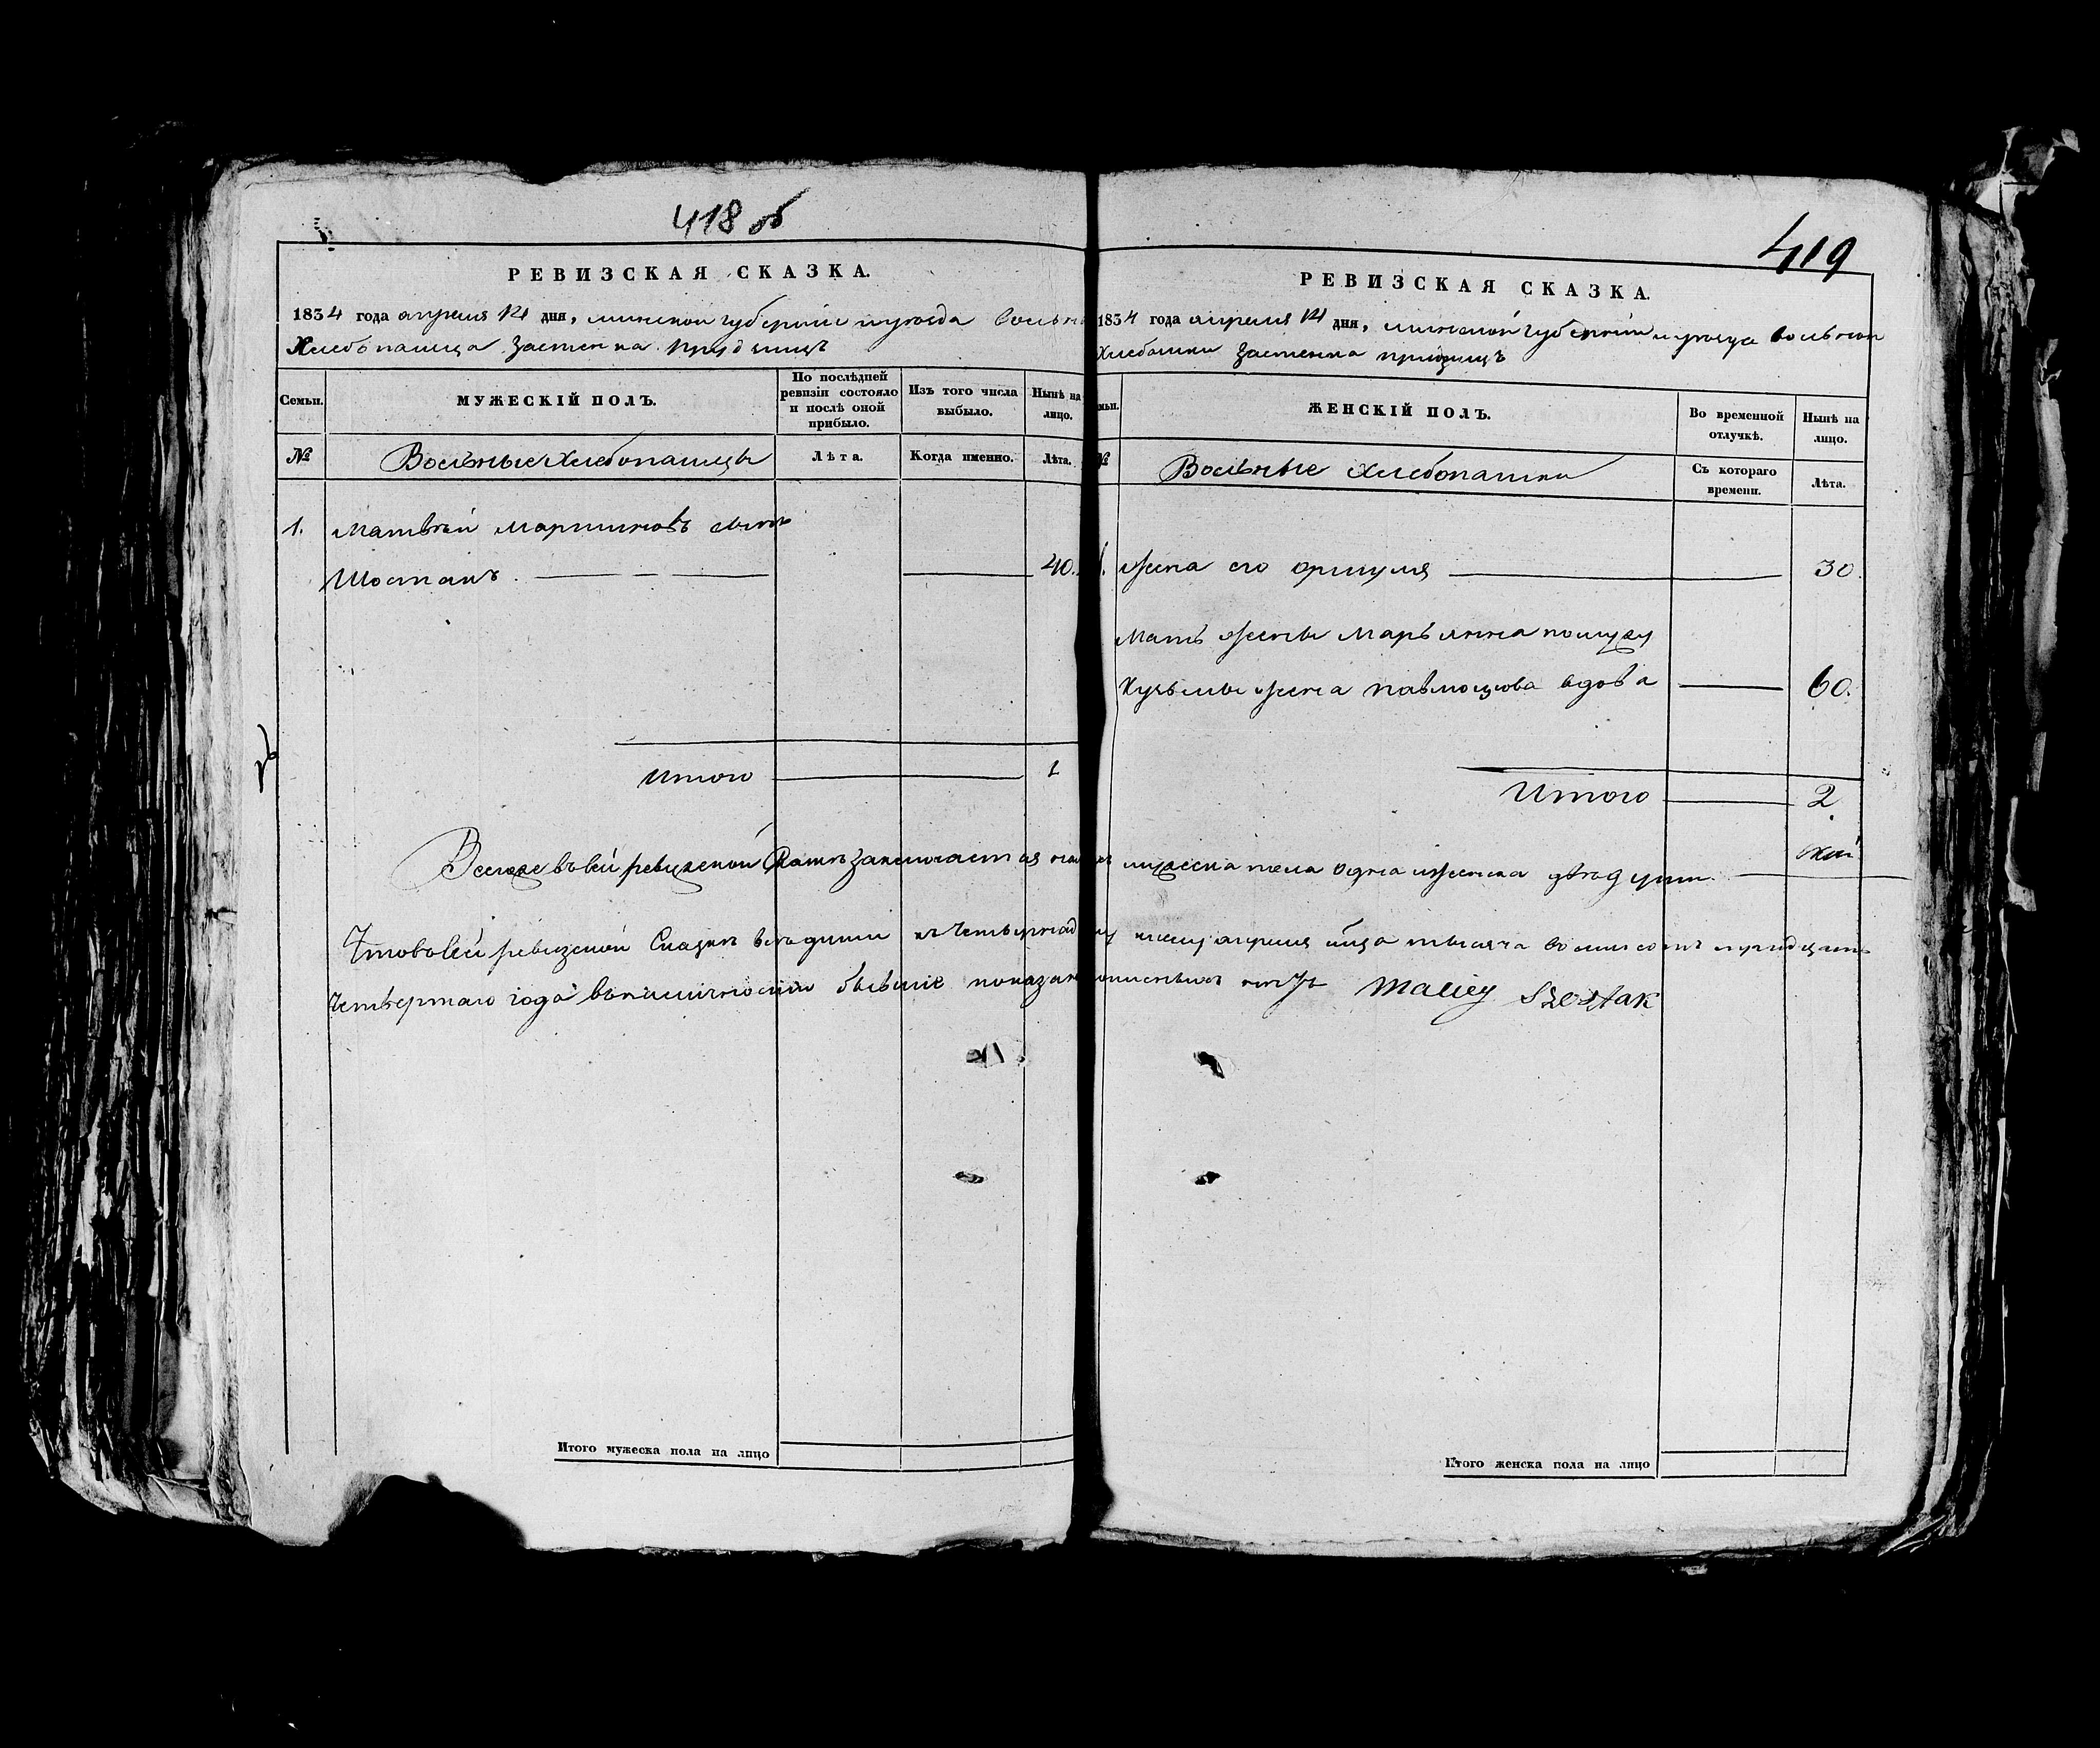 418 об
РЕВИЗСКАЯ СКАЗКА.
1834 года апреля 14 дня, минской губернии и уезда вольн
Хлебопашца Застенка Прудищъ
Семьи. МУЖЕСКІЙ ПОЛЪ. По послѣдней ревизіи состояло и послѣ оной прибыло. Изъ того числа выбыло. Нынѣ на лицо.
№ Вольные Хлебопашцы Лѣта. Когда именно. Лѣта.
1. Матвѣй Мартиновъ сынъ
Шостакъ. 40.
Итого 1
Всего въ сей ревизской Скаскѣ заключается
Что въ сей ревизской Сказкѣ все души къ Четырнад
Четвертаго года въ наличности бывшіе показан
Итого мужеска пола на лицо
419
РЕВИЗСКАЯ СКАЗКА.
1834 года апреля 14 дня, минской губернии и уезда вольной
Хлебашки Застенка Прудищъ
ЖЕНСКІЙ ПОЛЪ. Во временной отлучкѣ. Нынѣ на лицо.
№ Вольные хлебопашки Съ котораго времени. Лѣта.
1. жена его 30.
Мать жены Марьянна по мужу
Кузьмы жена вдова 60.
Итого 2
мужеска пола одна и женска двѣ души.
апреля тысяча восмисотъ тридцать
Maciey Szostak
Итого женска пола на лицо